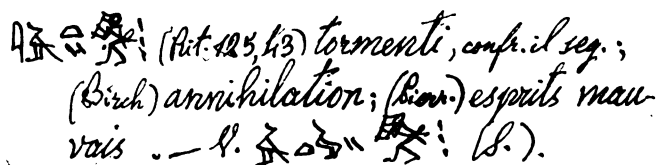 (Rit. 125, 13) tormenti, confr. il seg.;
(Birch) annihilation; (Pierr.) esprits mau-
vais. — V. (S.).